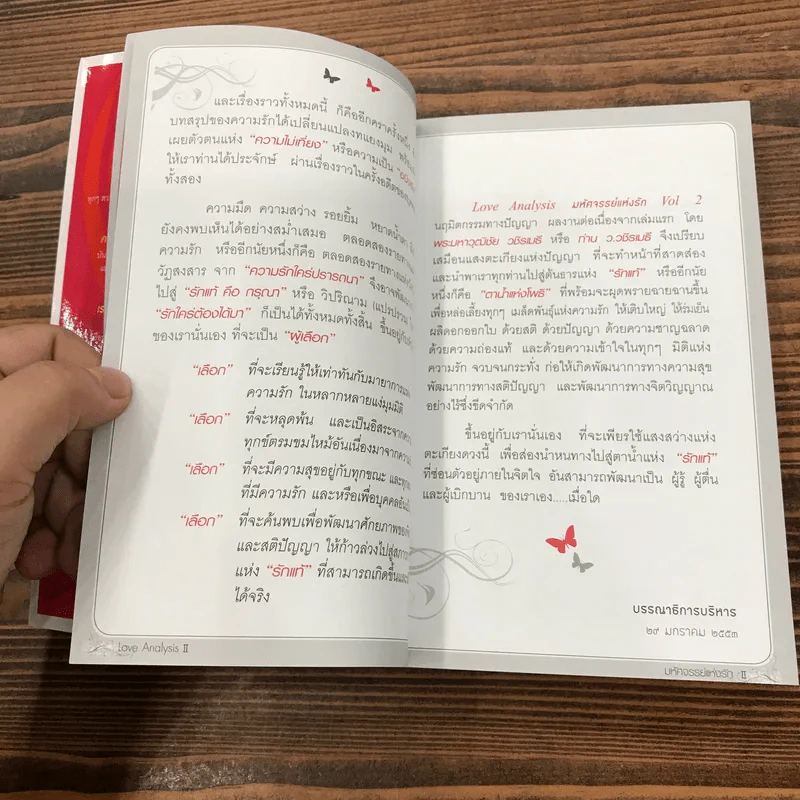 และเรื่องราวทั้งหมดนี้ ก็คืออีกคราครั้งหนึ่ง
บทสรุปของความรักได้เปลี่ยนแปลงทแยงมุม
เผยตัวตนแห่ง "ความไม่เที่ยง" หรือความเป็น
ให้เราท่านได้ประจักษ์ ผ่านเรื่องราวในครั้งอดีตของ
ทั้งสอง
ความมืด ความสว่าง รอยยิ้ม หยาดน้ำตา
ยังคงพบเห็นได้อย่างสม่ำเสมอ ตลอดสองรายทาง
ความรัก หรืออีกนัยหนึ่งก็คือ ตลอดสองรายทางแห่ง
วัฏสงสาร จาก "ความรักใคร่ปรารถนา" จึงอาจพัฒนา
ไปสู่ "รักแท้ คือ กรุณา" หรือ วิปริณาม (แปรปรวน)
"รักใคร่ต้องได้มา" ก็เป็นได้ทั้งหมดทั้งสิ้น ขึ้นอยู่กับ
ของเรานั่นเอง ที่จะเป็น "ผู้เลือก"
"เลือก" ที่จะเรียนรู้ให้เท่าทันกับมายาการ
ความรัก ในหลากหลายแง่มุมมิติ
"เลือก" ที่จะหลุดพ้น และเป็นอิสระจาก
ทุกข์ตรมขมไหม้อันเนื่องมาจาก
"เลือก" ที่จะมีความสุขอยู่กับทุกขณะ และ
ที่มีความรัก และหรือเพื่อบุคคลอัน
"เลือก" ที่จะค้นพบเพื่อพัฒนาศักยภาพของ
และสติปัญญา ให้ก้าวล่วงไปสู่
แห่ง "รักแท้" ที่สามารถเกิดขึ้น
ได้จริง
Love Analysis II
Love Analysis มหัศจรรย์แห่งรัก Vol 2
นฤมิตกรรมทางปัญญา ผลงานต่อเนื่องจากเล่มแรก โดย
พระมหาวุฒิชัย วชิรเมธี หรือ ท่าน ว.วชิรเมธี จึงเปรียบ
เสมือนแสงตะเกียงแห่งปัญญา ที่จะทำหน้าที่สาดส่อง
และนำพาเราทุกท่านไปสู่ต้นธารแห่ง "รักแท้" หรืออีกนัย
หนึ่งก็คือ "ตาน้ำแห่งโพธิ" ที่พร้อมจะผุดพรายฉายฉานขึ้น
เพื่อหล่อเลี้ยงทุกๆ เมล็ดพันธุ์แห่งความรัก ให้เติบใหญ่ ให้ร่มเย็น
ผลิดอกออกใบ ด้วยสติ ด้วยปัญญา ด้วยความชาญฉลาด
ด้วยความถ่องแท้ และด้วยความเข้าใจในทุกๆ มิติแห่ง
ความรัก จวบจนกระทั่ง ก่อให้เกิดพัฒนาการทางความสุข
พัฒนาการทางสติปัญญา และพัฒนาการทางจิตวิญญาณ
อย่างไร้ซึ่งขีดจำกัด
ขึ้นอยู่กับเรานั่นเอง ที่จะเพียรใช้แสงสว่างแห่ง
ตะเกียงดวงนี้ เพื่อส่องนำหนทางไปสู่ตาน้ำแห่ง "รักแท้"
ที่ซ่อนตัวอยู่ภายในจิตใจ อันสามารถพัฒนาเป็น ผู้รู้ ผู้ตื่น
และผู้เบิกบาน ของเราเอง.....เมื่อใด
บรรณาธิการบริหาร
๒๙ มกราคม ๒๕๕๓
มหัศจรรย์แห่งรัก II